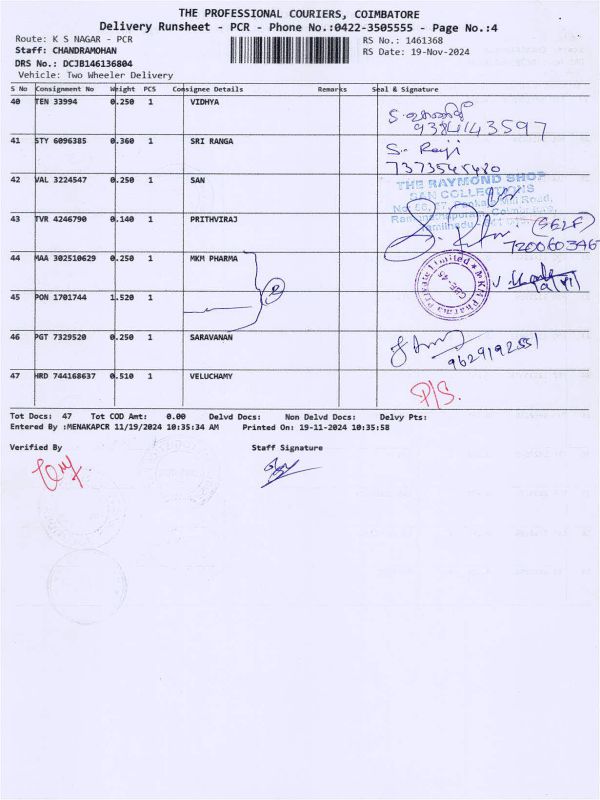 THE PROFESSIONAL COURIERS, COIMBATORE
Delivery Runsheet - PCR - Phone No.:0422-3505555 - Page No.:4
Route: K S NAGAR - PCR RS No.: 1461368
Staff: CHANDRAMOHAN RS Date: 19-Nov-2024
DRS No.: DCJB146136804
Vehicle: Two Wheeler Delivery
S No Consignment No Weight PCS Consignee Details Remarks Seal & Signature
40 TEN 33994 0.250 1 VIDHYA
9384143597
41 STY 6096385 0.360 1 SRI RANGA S. Raji
7373545480
42 VAL 3224547 0.250 1 SAN
THE RAYMOND SHOP
SAN COLLECTIONS
43 TVR 4246790 0.140 1 PRITHVIRAJ (SELF)
720060346
44 MAA 302510629 0.250 1 MKM PHARMA
MKM Pharma Private Limited
CBE-45
45 PON 1701744 1.520 1
46 PGT 7329520 0.250 1 SARAVANAN
9629192551
47 HRD 744168637 0.510 1 VELUCHAMY P/S.
Tot Docs: 47 Tot COD Amt: 0.00 Delvd Docs: Non Delvd Docs: Delvy Pts:
Entered By :MENAKAPCR 11/19/2024 10:35:34 AM Printed On: 19-11-2024 10:35:58
Verified By Staff Signature